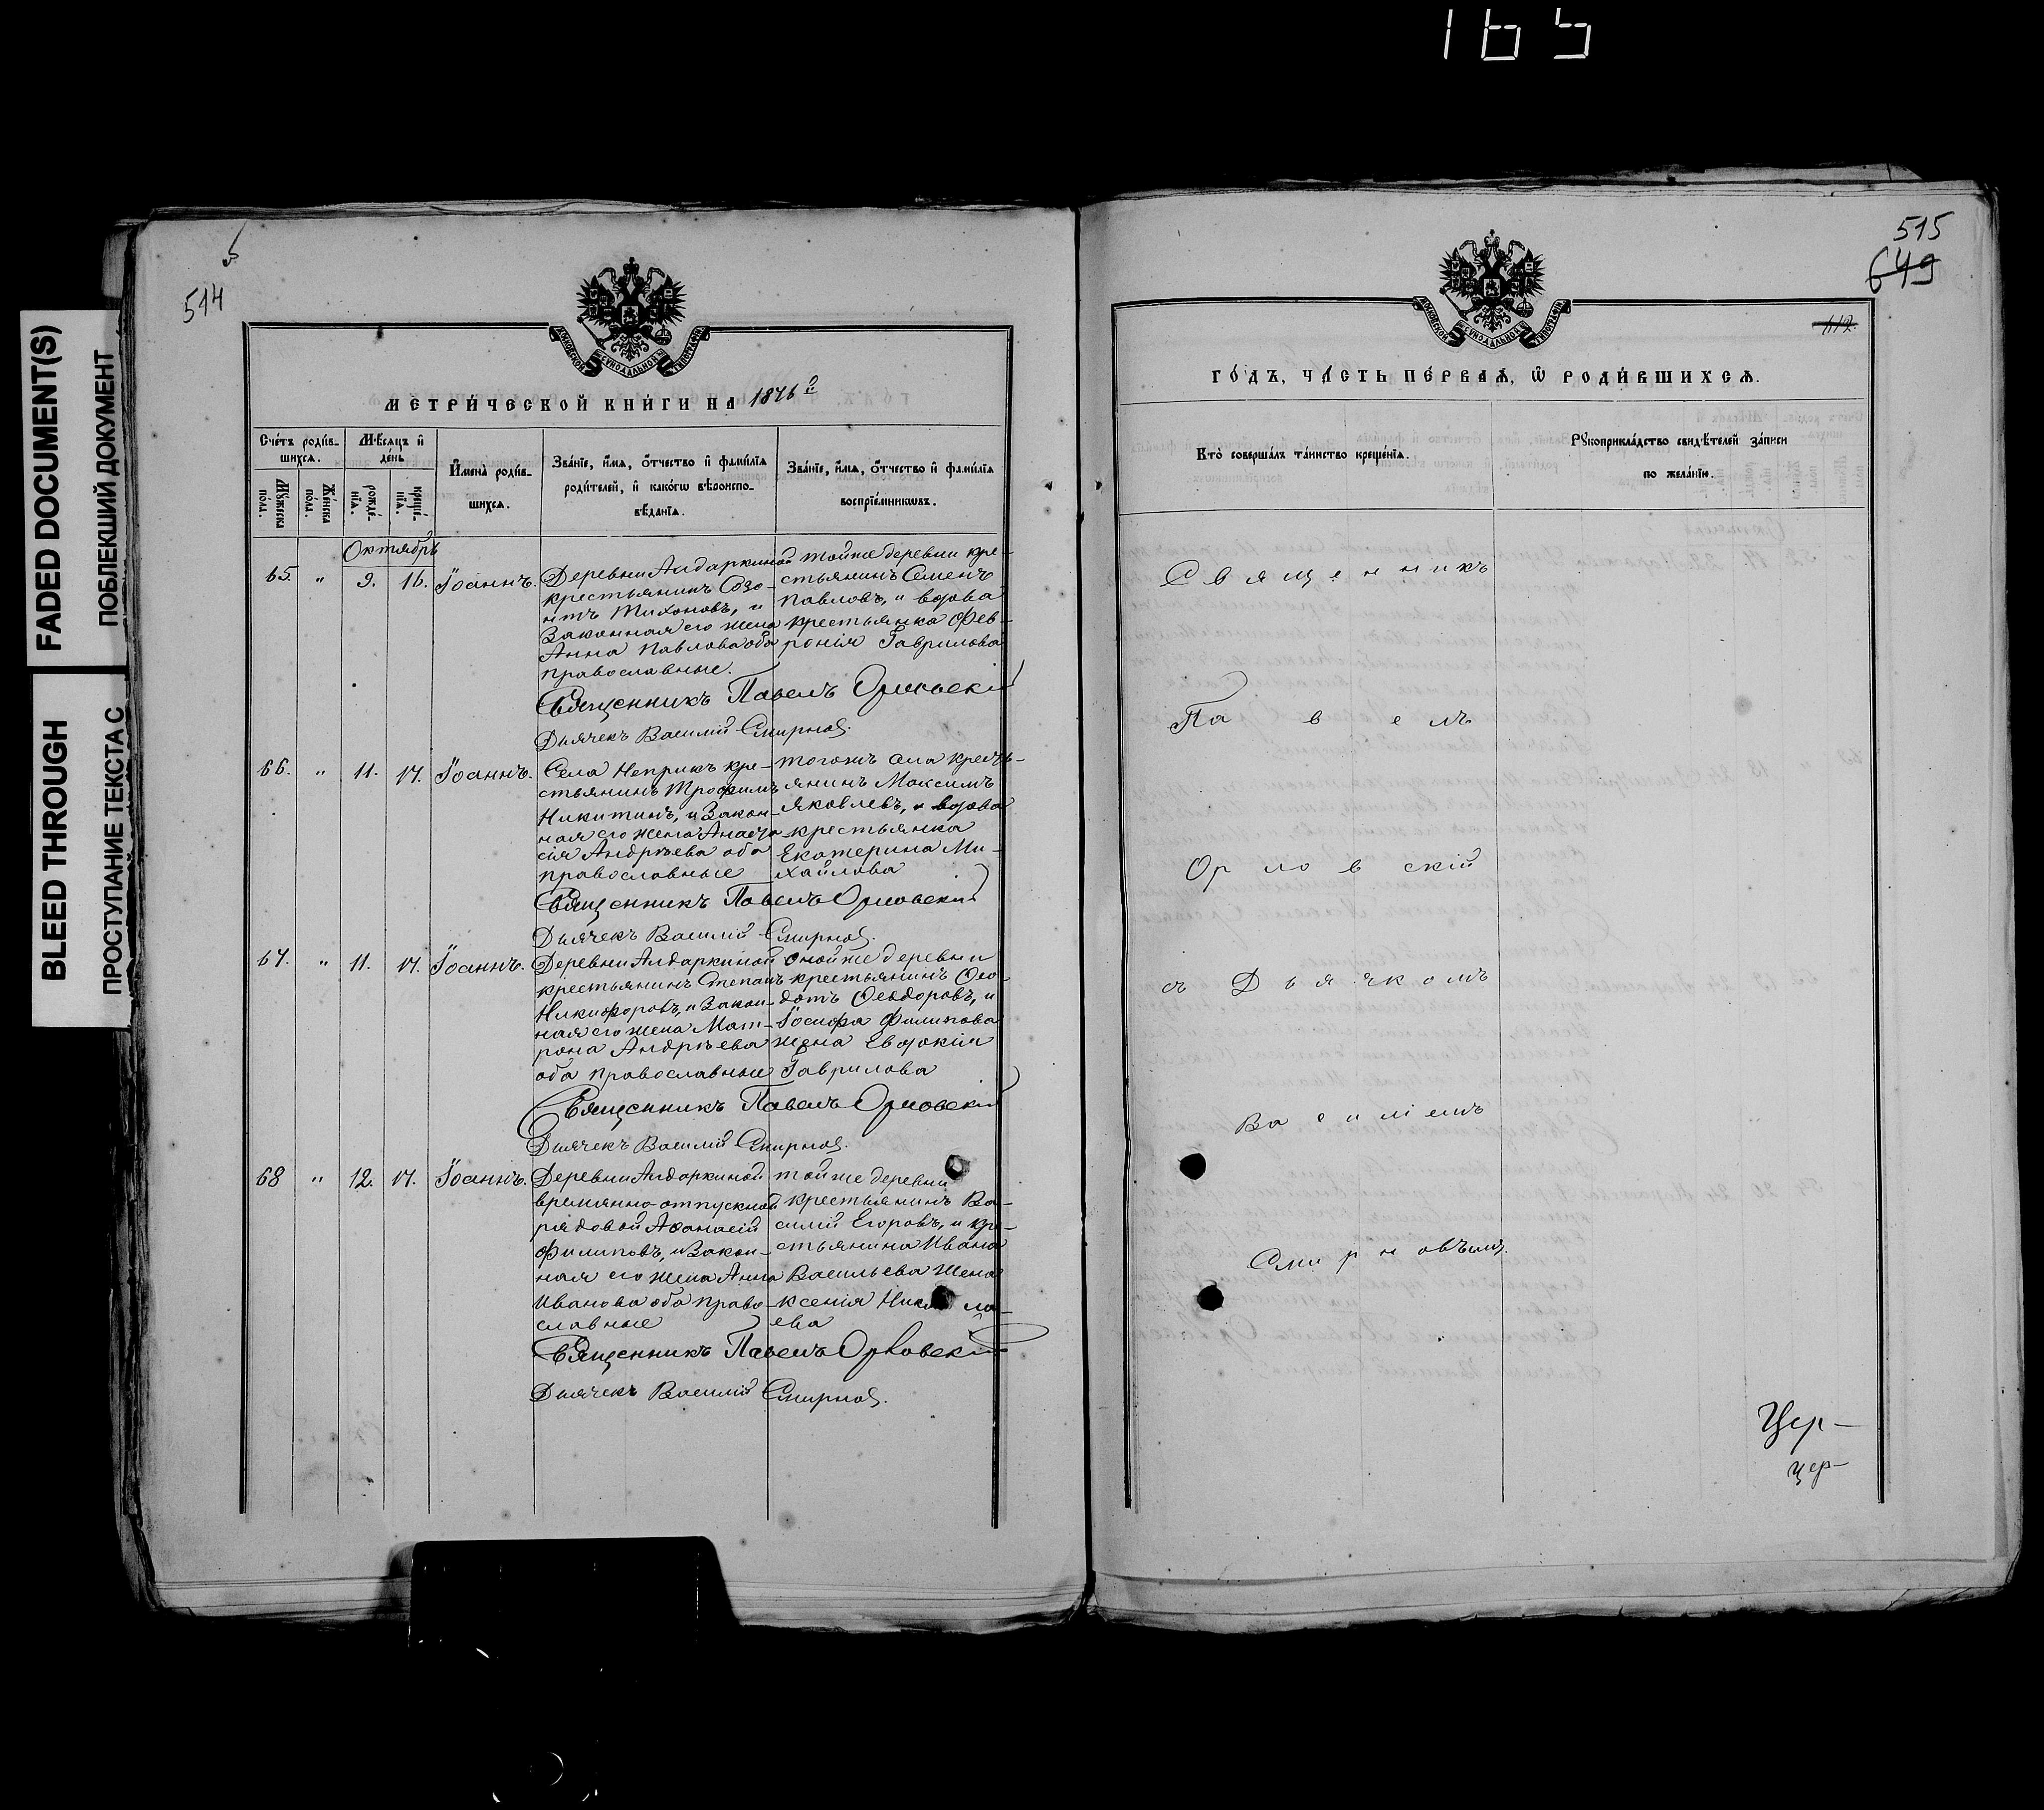 165
FADED DOCUMENT(S)
ПОБЛЕКШИЙ ДОКУМЕНТ
BLEED THROUGH
ПРОСТУПАНИЕ ТЕКСТА С
514
МОСКОВСКОЙ СѴНОДАЛЬНОЙ ТИПОГРАФІИ
МЕТРИ́ЧЕСКОЙ КНИ́ГИ НА 1876 го
Сче́тъ роди́в-
шихсѧ.
Мѣ́сѧцъ и҆
де́нь
И҆мена̀ роди́в-
шихсѧ.
Зва́нїе, и҆́мѧ, ѻ҆́тчество и҆ фами́лїѧ
роди́телей, и҆ како́гѡ вѣроиспо-
вѣ́данїѧ.
Зва́нїе, и҆́мѧ, ѻ҆́тчество и҆ фами́лїѧ
воспрїе́мникѡвъ.
Мꙋ́жеска
по́ла.
Же́нска
по́ла.
рожде́-
нїѧ.
креще́-
нїѧ.
Октябрь
65. " 9. 16. Іоаннъ.
Деревни Алдаркиной
крестьянинъ Созо-
нтъ Тихоновъ, и
законная его жена
Анна Павлова оба
православные.
тойже деревни кре-
стьянинъ Семенъ
Павловъ, и вдова
крестьянка Фев-
ронія Гаврилова
Священникъ Павелъ Орловскій
Дьячекъ Василій Смирновъ.
66. " 11. 17. Іоаннъ.
Села Неприкъ кре-
стьянинъ Трофимъ
Никитинъ, и закон-
ная его жена Анаста-
сія Андрѣева оба
православные
тогожъ села кресть-
янинъ Максимъ
Яковлевъ, и вдова
крестьянка
Екатерина Ми-
хайлова
Священникъ Павелъ Орловскій
Дьячекъ Василій Смирновъ.
67. " 11. 17. Іоаннъ.
Деревни Алдаркиной
крестьянинъ Степанъ
Никифоровъ, и закон-
ная его жена Мат-
рона Андрѣева
оба православные
онойже деревни
крестьянинъ Ѳео-
дотъ Ѳеодоровъ, и
Іосифа Филипова
жена Евдокія
Гаврилова
Священникъ Павелъ Орловскій
Дьячекъ Василій Смирновъ.
68 " 12. 17. Іоаннъ.
Деревни Алдаркиной
временно-отпускной
рядовой Аѳанасій
Филиповъ, и закон-
ная его жена Анна
Иванова оба право-
славные
тойже деревни
крестьянинъ Ва-
силій Егоровъ, и кре-
стьянина Ивана
Васильева жена
Ксенія Никола-
ева
Священникъ Павелъ Орловскій
Дьячекъ Василій Смирновъ.
515
649
112.
МОСКОВСКОЙ СѴНОДАЛЬНОЙ ТИПОГРАФІИ
ГО́ДЪ, ЧА́СТЬ ПЕ́РВАѦ, Ѡ҆ РОДИ́ВШИХСѦ.
Кто̀ соверша́лъ та́инство креще́нїѧ.
Рꙋкоприкла́дство свидѣ́телей за́писи
по жела́нїю.
Священникъ
Павелъ
Орловскій
съ Дьячкомъ
Василіемъ
Смирновымъ.
Цер-
цер-